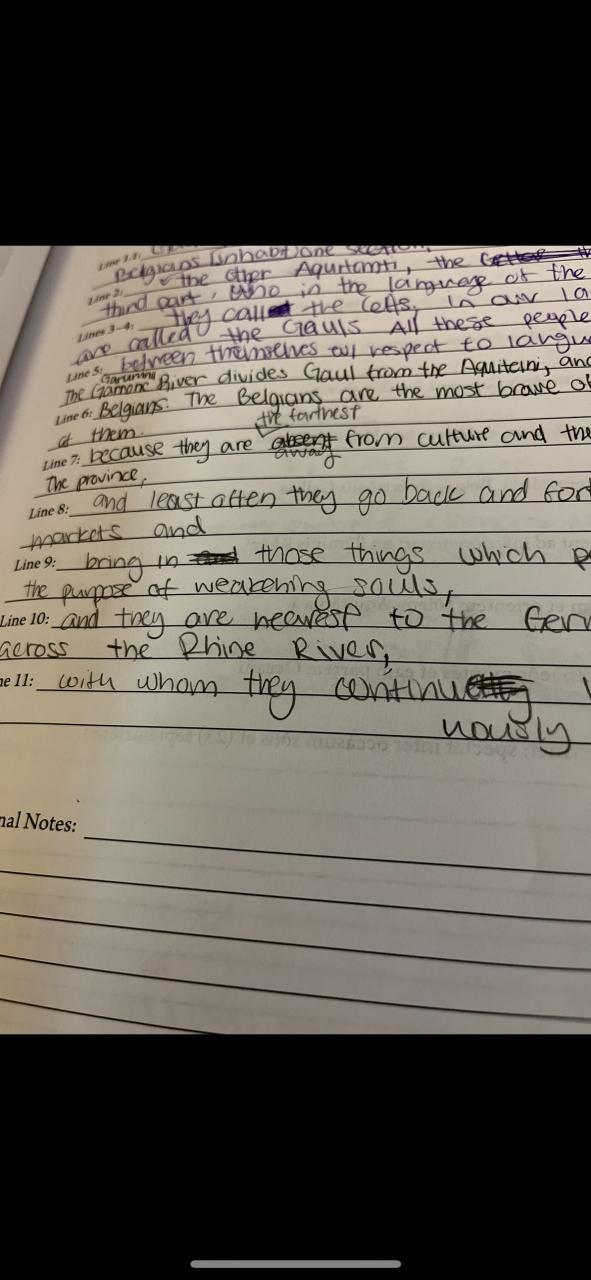 Belgians inhabit one
Line 2: the other Aquitanti, the
third part, who in the language of the
Lines 3-4: they call the Celts, In our la
are called the Gauls All these people
Line 5: between themselves w/ respect to langu
Garunna
The River divides Gaul from the Aquiteini, and
Line 6: Belgians. The Belgians are the most brave of
them.
the farthest
Line 7: because they are from culture and the
away
The province,
Line 8: and least often they go back and for
markets and
Line 9: bring in those things which p
the purpose of weakening souls,
Line 10: and they are nearest to the Ger
across the Rhine River,
ne 11: with whom they continu
uously
nal Notes: